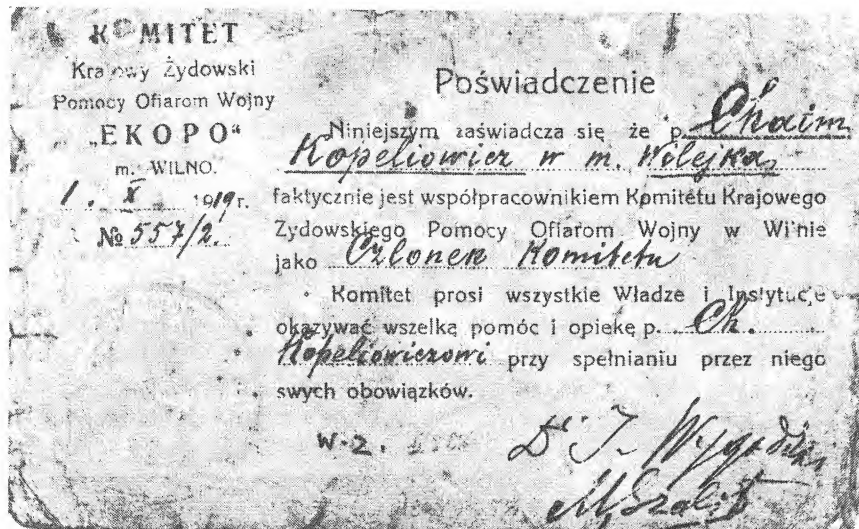 KOMITET
Krajowy Żydowski
Pomocy Ofiarom Wojny
„EKOPO“
m. WILNO.
1. X 1919 r.
№ 557/2.
Poświadczenie
Niniejszym zaświadcza się że p. Chaim
Kopeliowicz w m. Wilejka,
faktycznie jest współpracownikiem Komitetu Krajowego
Żydowskiego Pomocy Ofiarom Wojny w Wilnie
jako Członek Komitetu
Komitet prosi wszystkie Władze i Instytucje
okazywać wszelką pomóc i opiekę p. Ch.
Kopeliowiczowi przy spełnianiu przez niego
swych obowiązków.
W.Z.
Dr J. Wygodzki